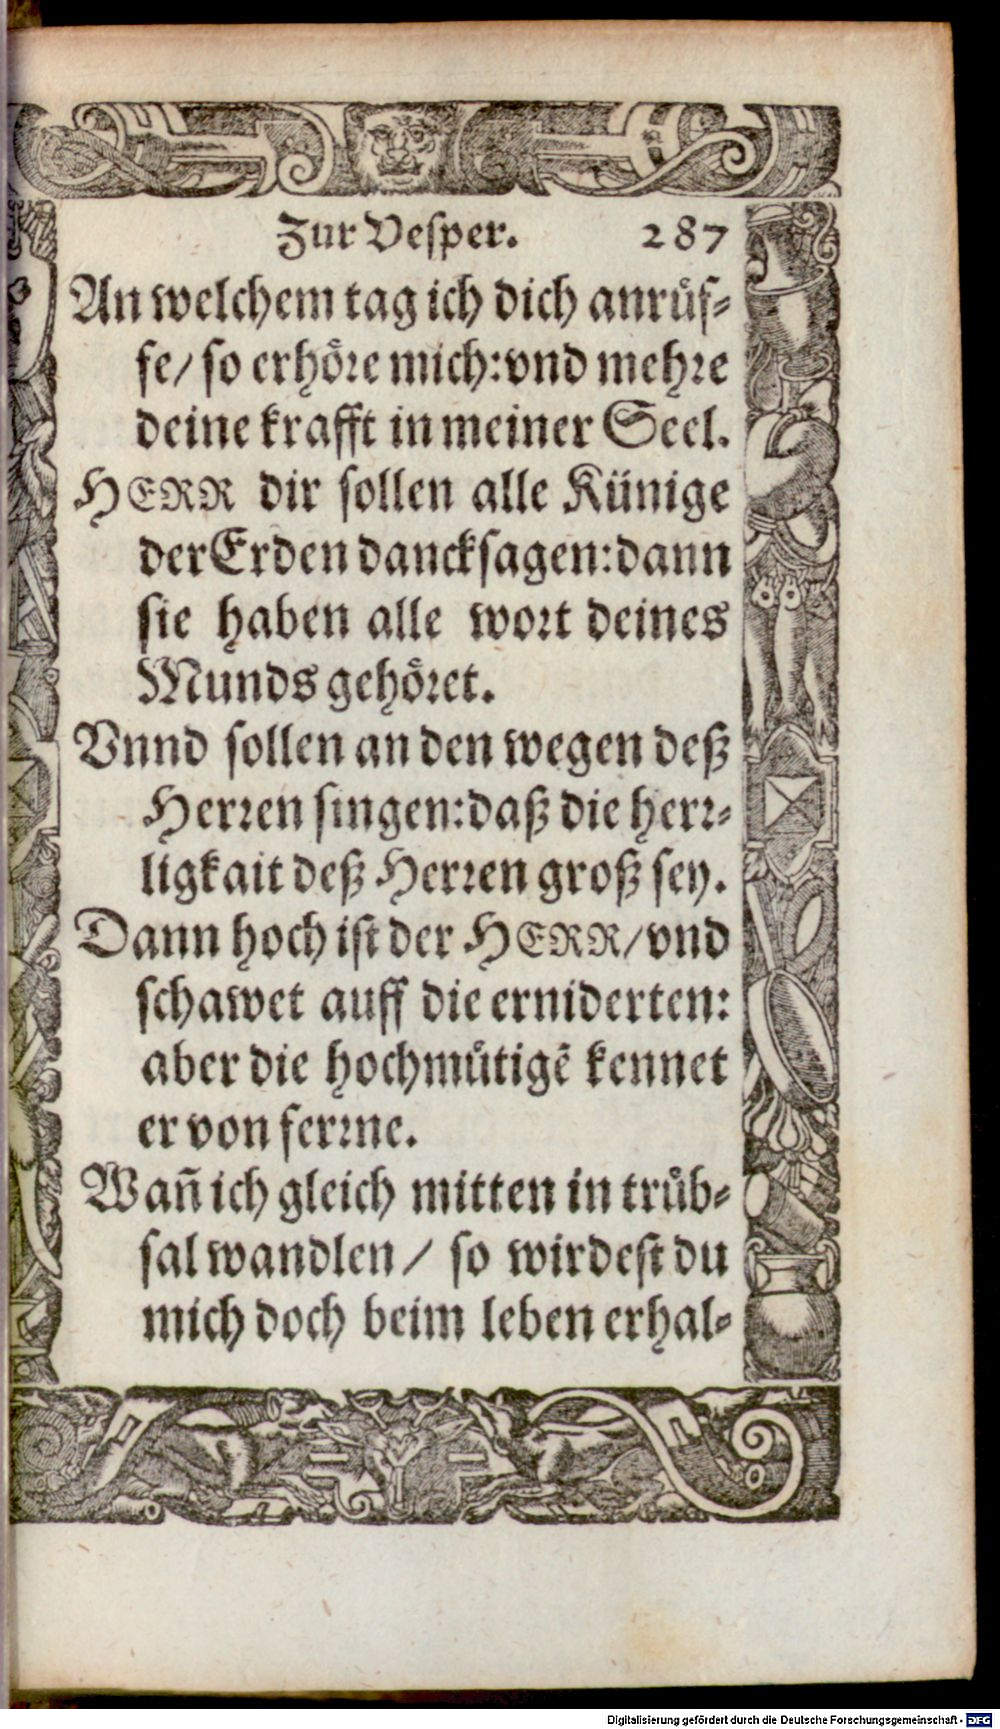 Zur Veſper. 287
An welchem tag ich dich anruͤf⸗
fe/ ſo erhoͤꝛe mich: vnd mehꝛe
deine krafft in meiner Seel.
HERR dir ſollen alle Künige
der Erden danckſagen: dann
ſie haben alle woꝛt deines
Munds gehoͤꝛet.
Vnnd ſollen an den wegen deß
Herꝛen ſingen: daß die herꝛ⸗
ligkait deß Herꝛen groß ſey.
Dann hoch iſt der HERR/ vnd
ſchawet auff die erniderten:
aber die hochmuͤtigẽ kennet
er von ferꝛne.
Wañ ich gleich mitten in truͤb⸗
ſal wandlen / ſo wirdeſt du
mich doch beim leben erhal⸗
Digitalisierung gefördert durch die Deutsche Forschungsgemeinschaft - DFG